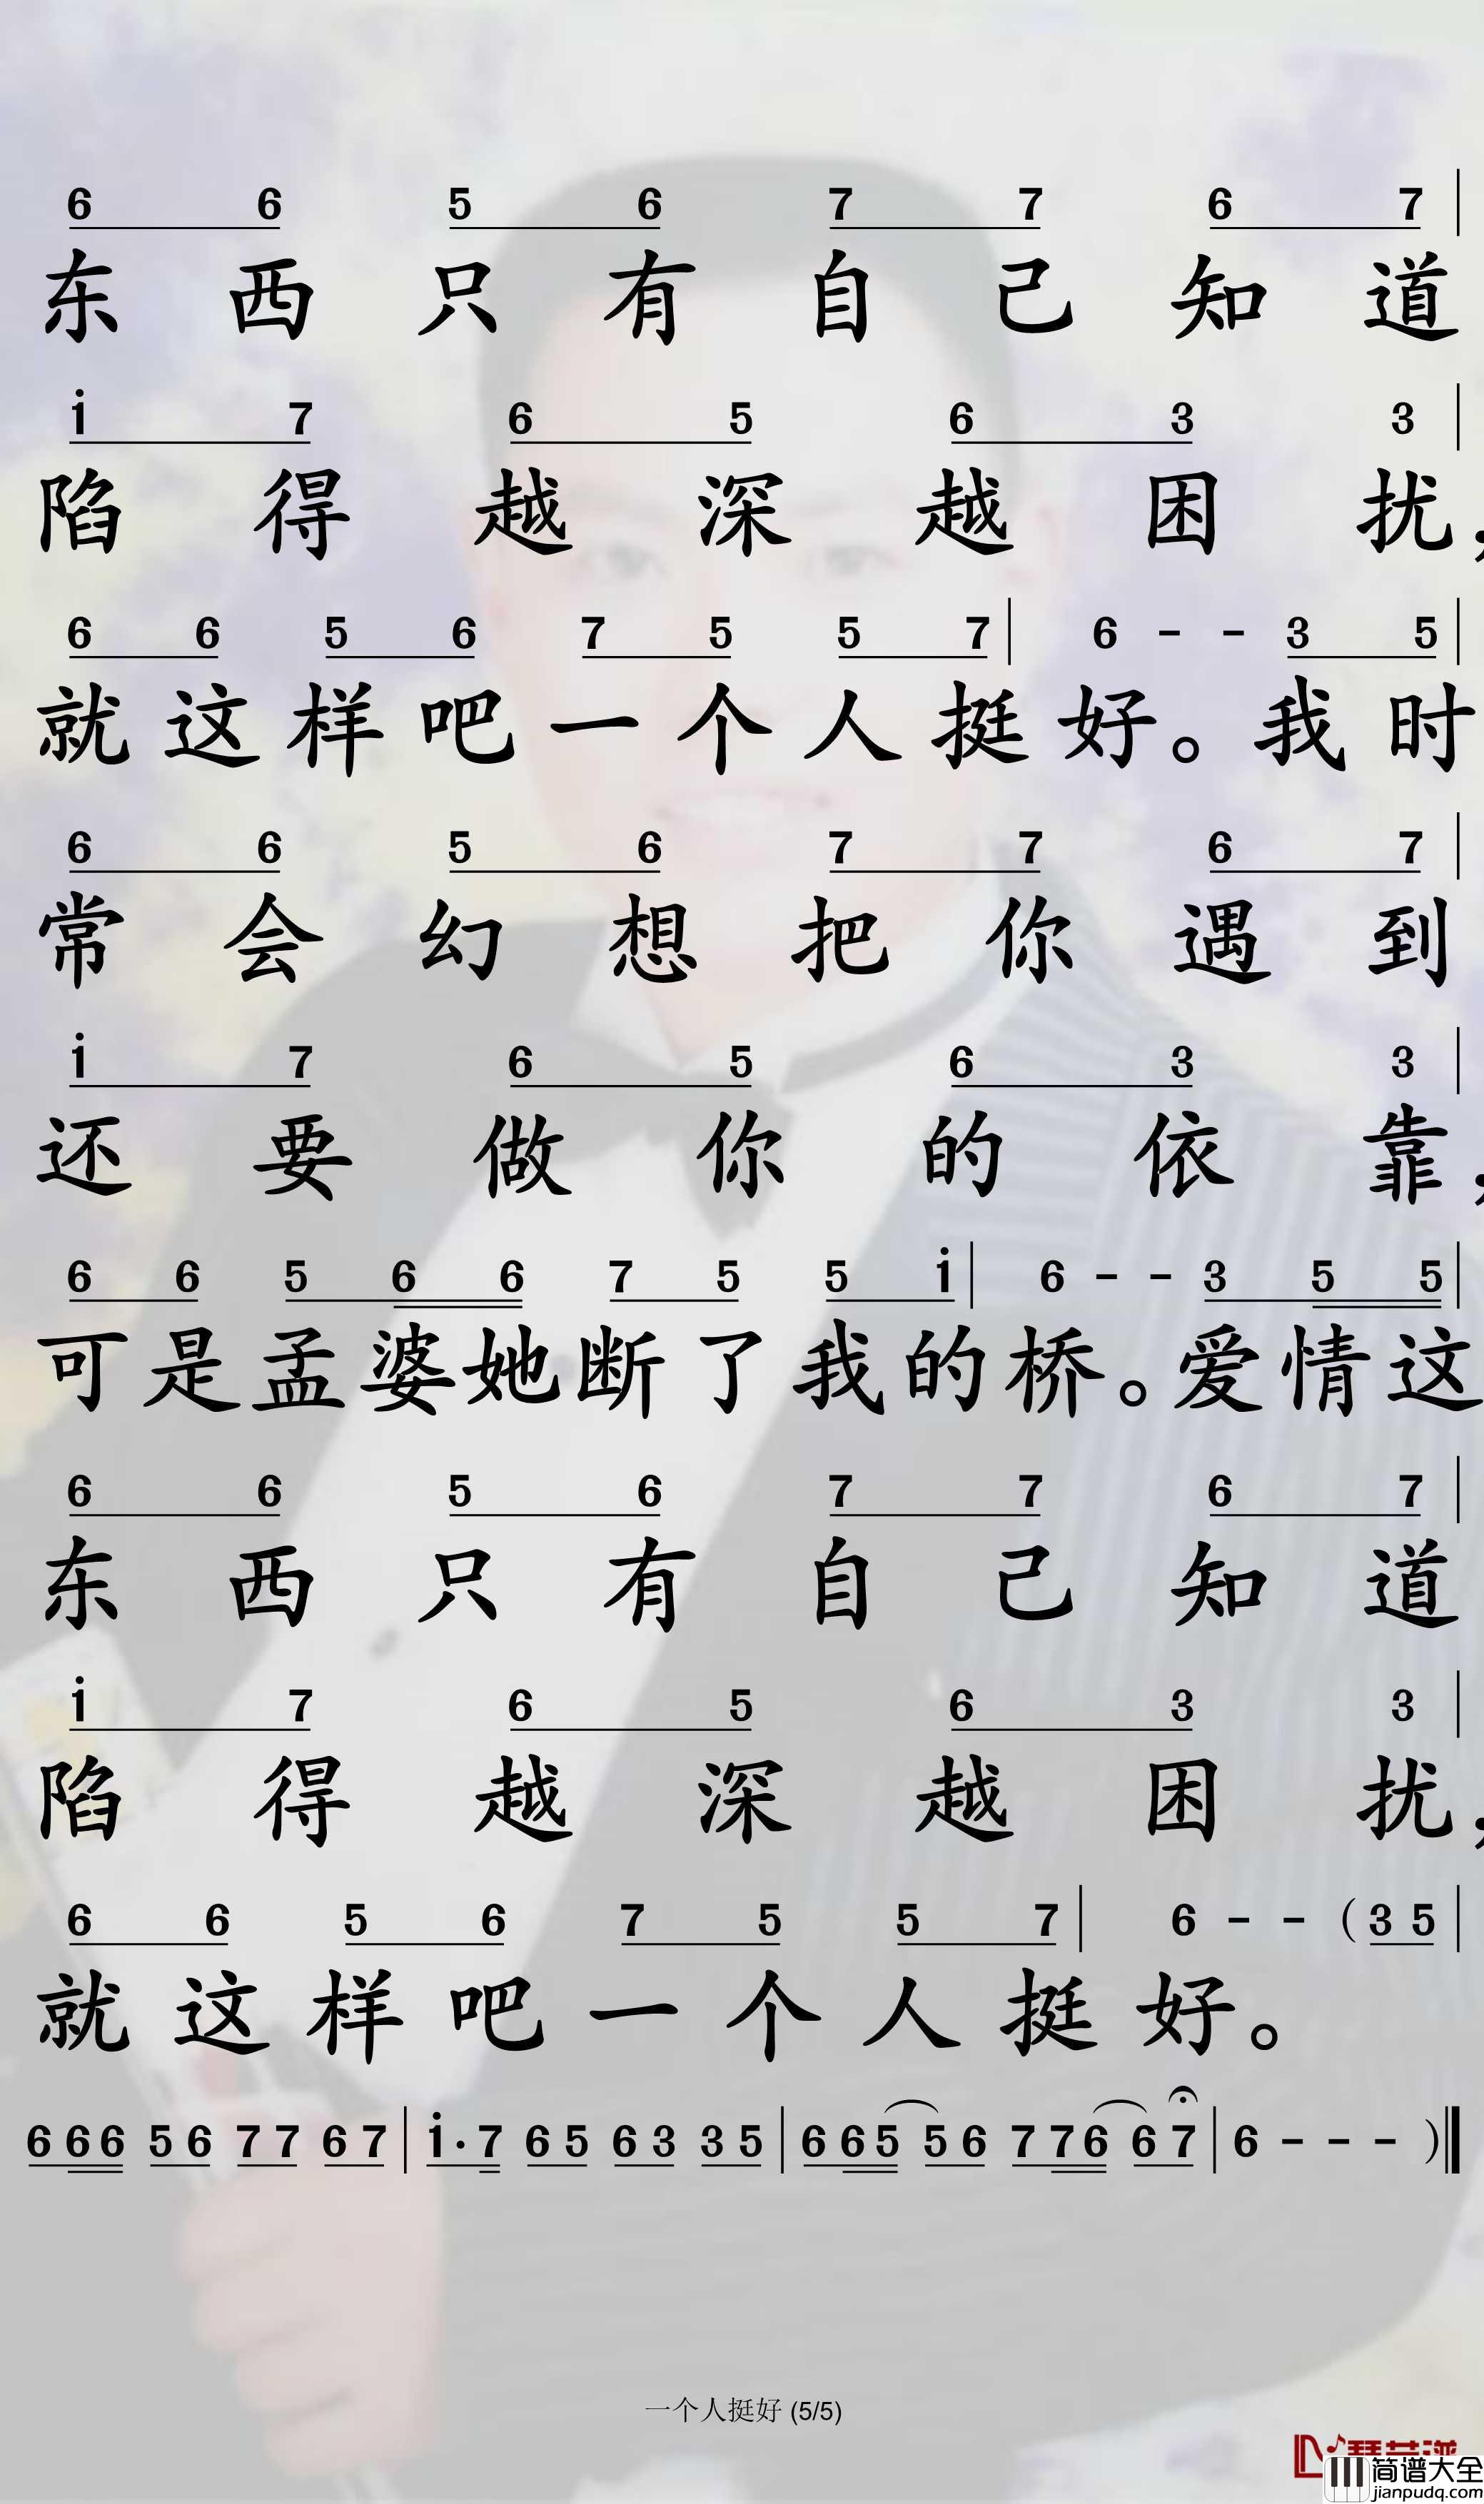 6 6 5 6 7 7 6 7 |
东西只有自己知道
i 7 6 5 6 3 3 |
陷得越深越困扰，
6 6 5 6 7 5 5 7 | 6 - - 3 5 |
就这样吧一个人挺好。我时
6 6 5 6 7 7 6 7 |
常会幻想把你遇到
i 7 6 5 6 3 3 |
还要做你的依靠，
6 6 5 6 6 7 5 5 i | 6 - - 3 5 5 |
可是孟婆她断了我的桥。爱情这
6 6 5 6 7 7 6 7 |
东西只有自己知道
i 7 6 5 6 3 3 |
陷得越深越困扰，
6 6 5 6 7 5 5 7 | 6 - - (3 5 |
就这样吧一个人挺好。
6 6 6 5 6 7 7 6 7 | i · 7 6 5 6 3 3 5 | 6 6 5 5 6 7 7 6 6 7 | 6 - - - )
一个人挺好 (5/5)
简谱大全
jianpudq.com